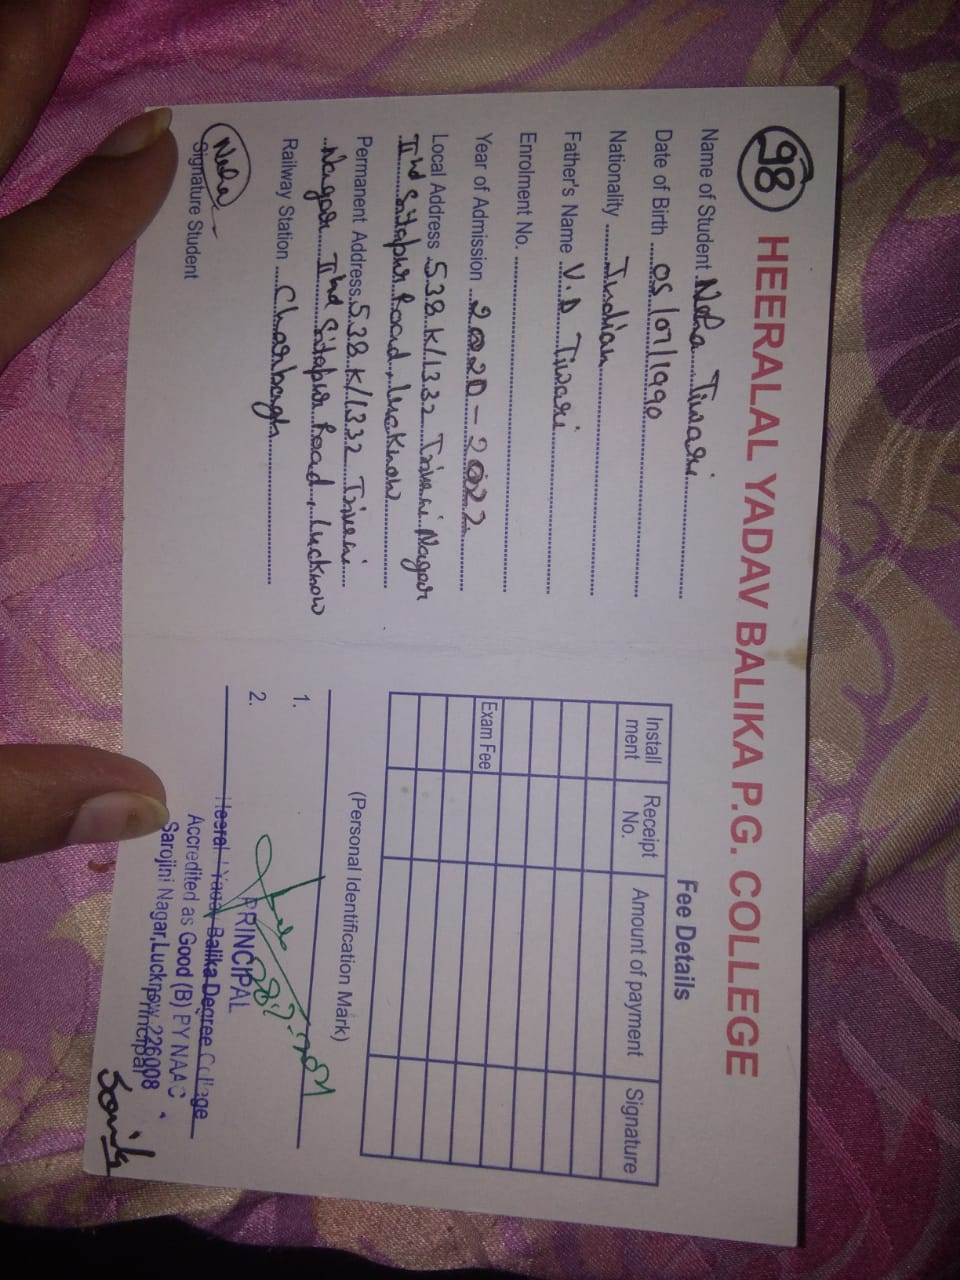 98
HEERALAL YADAV BALIKA P.G. COLLEGE
Name of Student Neha Tiwari
Date of Birth 05/07/1990
Nationality Indian
Father's Name V.D Tiwari
Enrolment No.
Year of Admission 2020-2022
Local Address 538 K/1332 Triveni Nagar
IIIrd Sitapur Road, Lucknow
Permanent Address 538 K/1332 Triveni
Nagar IIIrd Sitapur Road, Lucknow
Railway Station Charbagh
Neha
Signature Student
Fee Details
Install ment Receipt No. Amount of payment Signature
Exam Fee
(Personal Identification Mark)
1.
2.
PRINCIPAL
Heeralal Yadav Balika Degree College
Accredited as Good (B) BY NAAC
Sarojini Nagar, Lucknow 226008
Principal